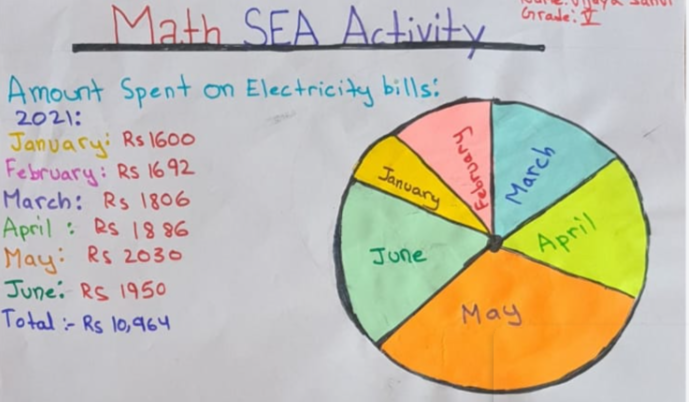 Math SEA Activity
Grade: V
Amount Spent on Electricity bills:
2021:
January: Rs 1600
February: Rs 1692
March: Rs 1806
April : Rs 1886
May: Rs 2030
June: Rs 1950
Total :- Rs 10,964
February
March
January
April
June
May